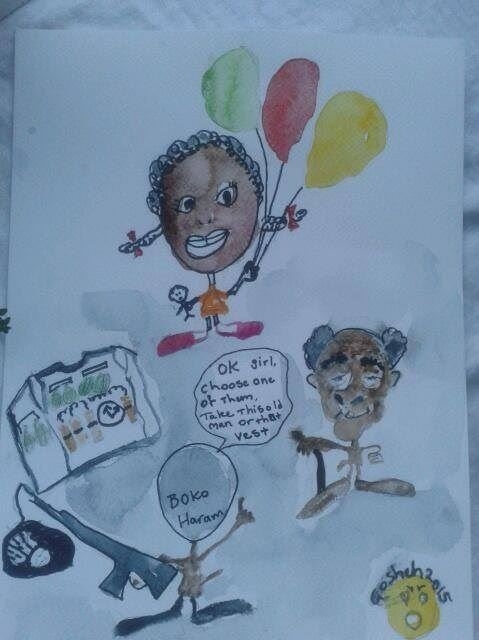 OK girl,
choose one
of them,
Take this old
man or that
vest
BOKO
Haram